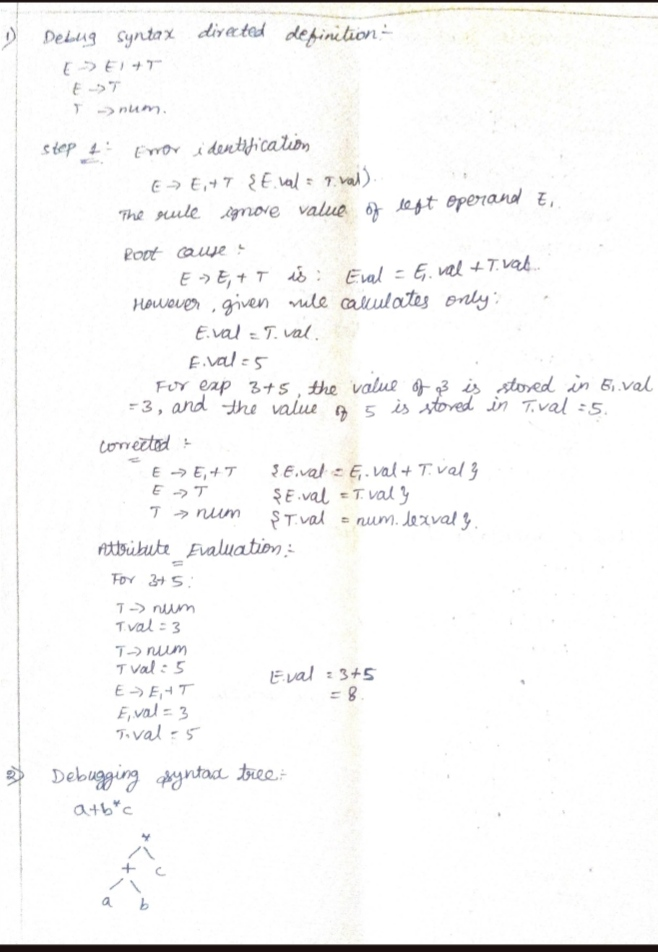 1) Debug syntax directed definition:-
E → E1 + T
E → T
T → num.
step 1: Error identification
E → E1 + T {E.val = T.val).
The rule ignore value of left operand E1
Root cause:
E → E1 + T is: E.val = E1.val + T.val.
However, given rule calculates only:
E.val = T.val.
E.val = 5
For exp 3+5, the value of 3 is stored in E1.val
=3, and the value of 5 is stored in T.val = 5.
corrected :-
E → E1 + T {E.val = E1.val + T.val}
E → T {E.val = T.val}
T → num {T.val = num.lexval}.
Attribute Evaluation:-
For 3+5:
T → num
T.val = 3
T → num
T val = 5 E.val = 3+5
E → E1 + T = 8.
E1 val = 3
T.val = 5
2) Debugging syntax tree:-
a+b*c
*
+ c
a b